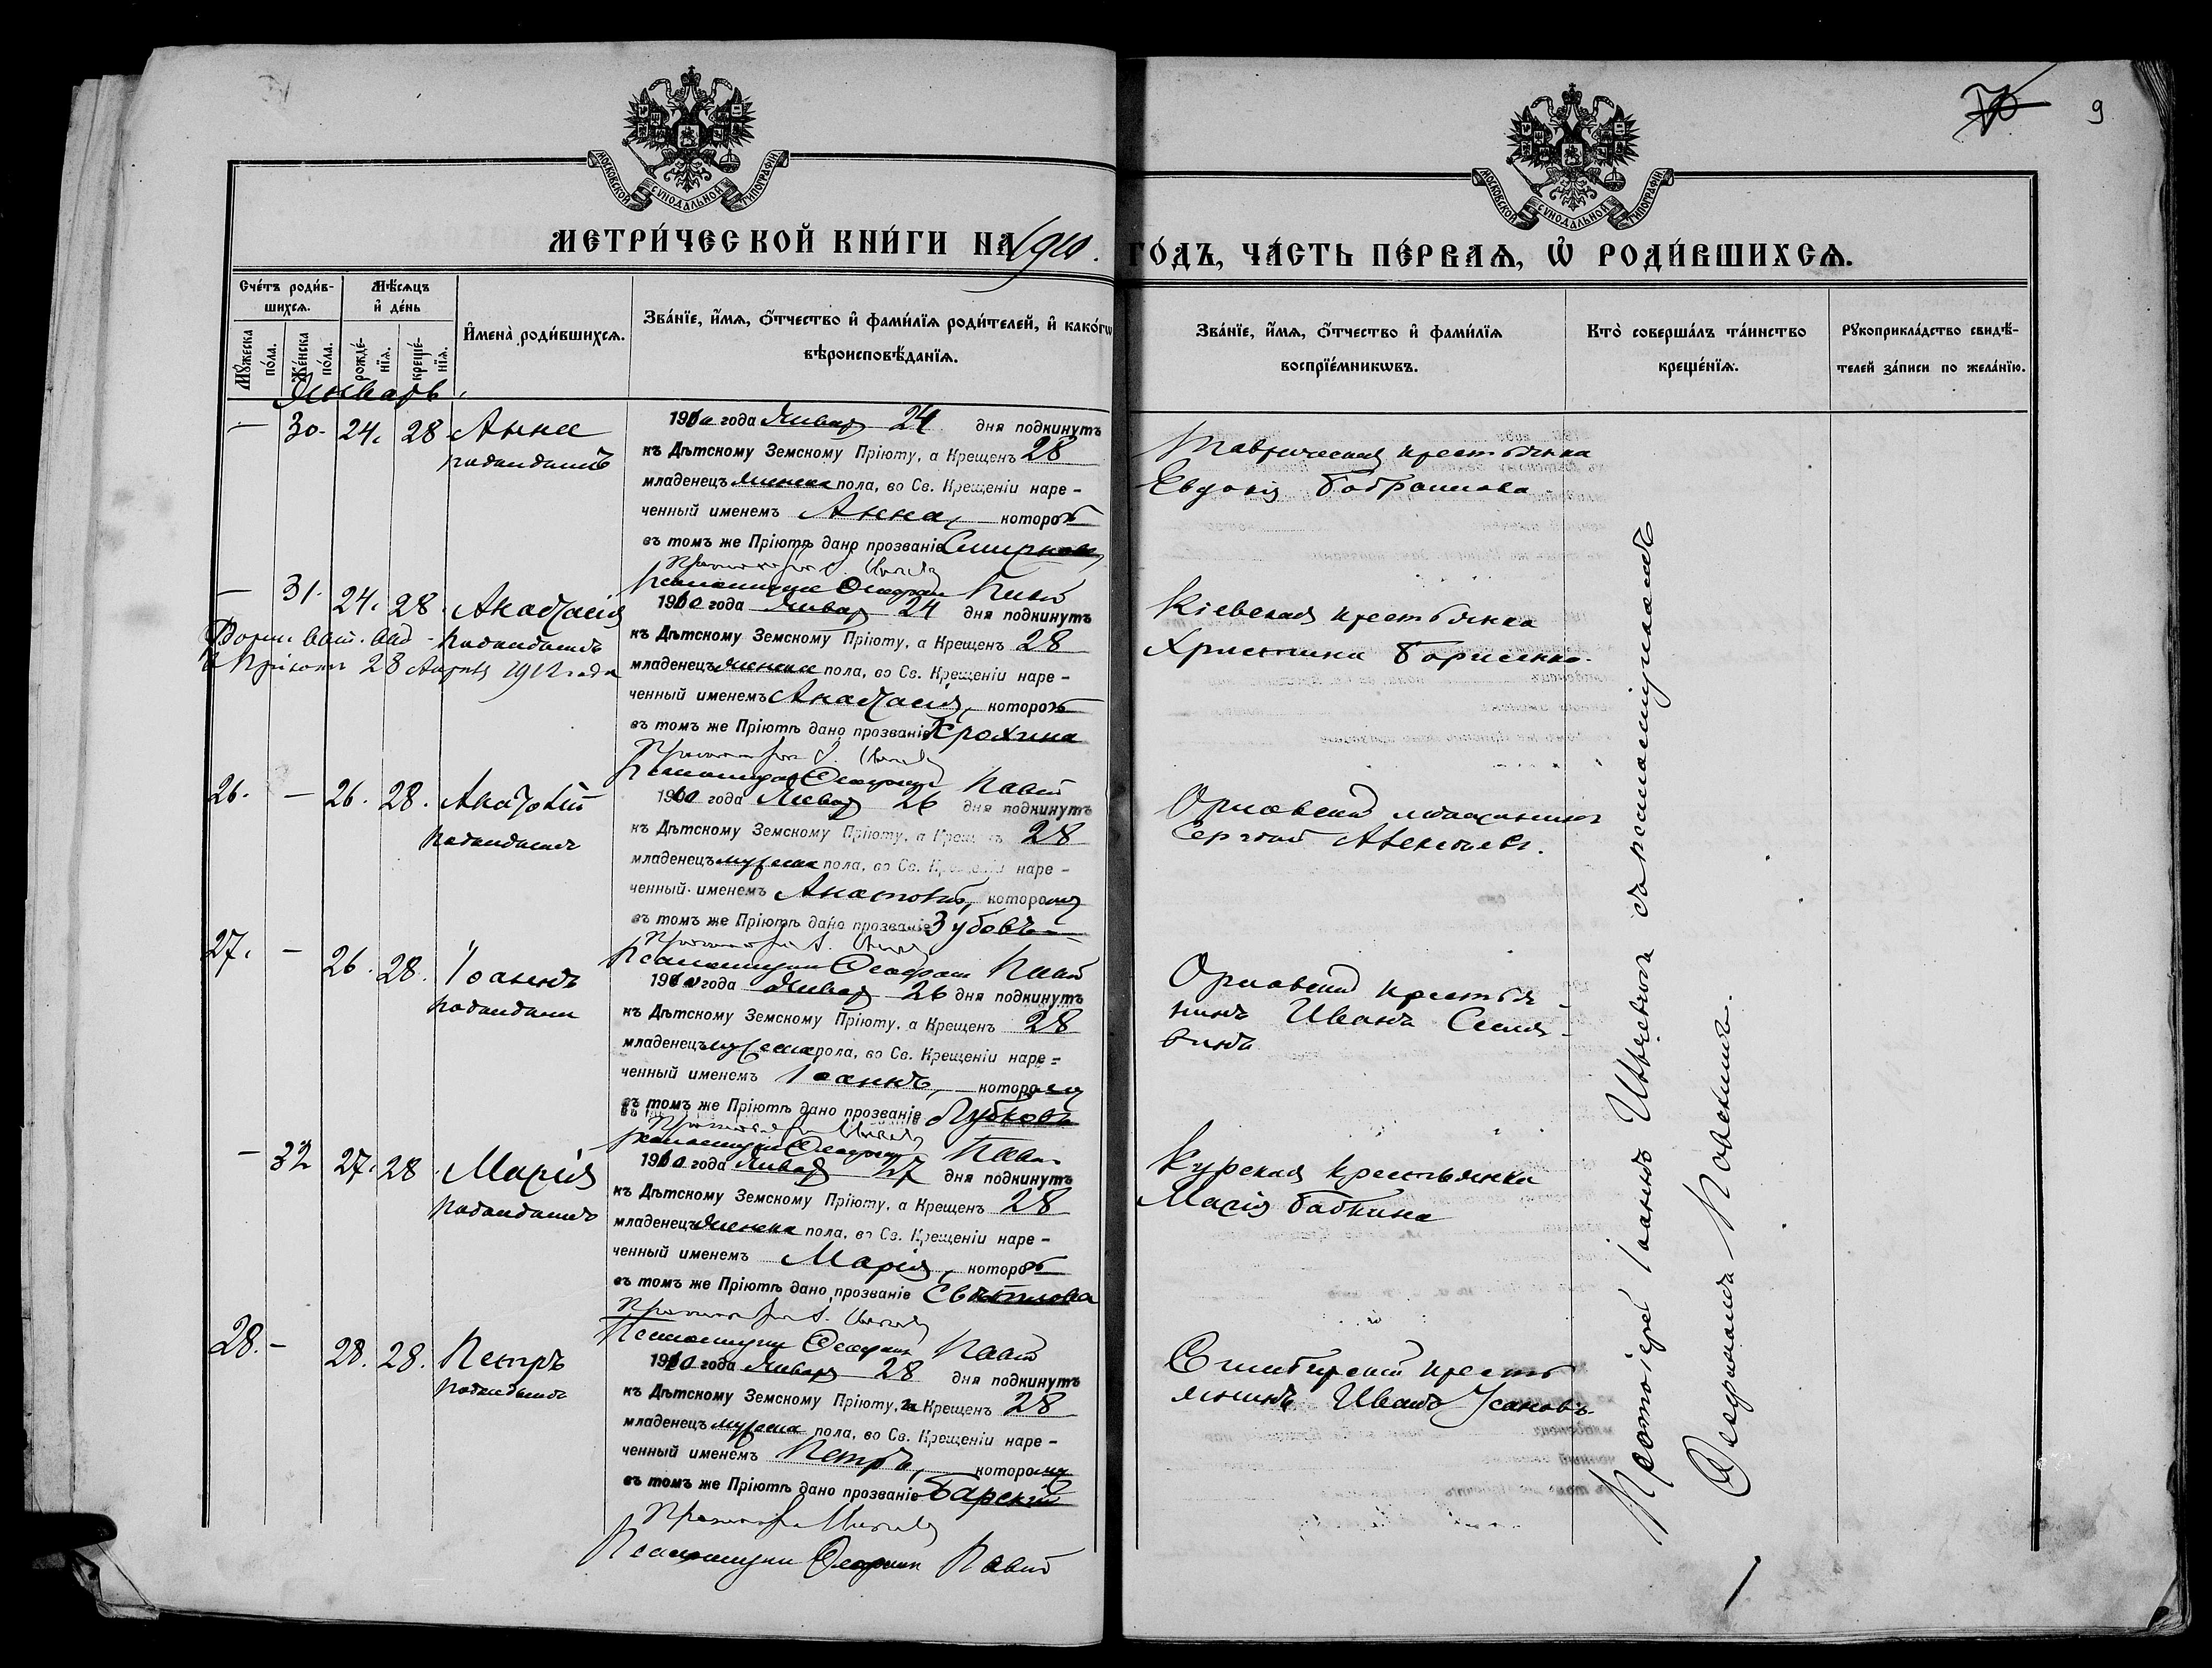 70
9
МОСКОВСКОЙ СѴНОДАЛЬНОЙ ТИПОГРАФІИ
МОСКОВСКОЙ СѴНОДАЛЬНОЙ ТИПОГРАФІИ
МЕТРИ́ЧЕСКОЙ КНИ́ГИ НА 1910.
ГО́ДЪ, ЧА́СТЬ ПЕ́РВАѦ, Ѡ҆ РОДИ́ВШИХСѦ.
Сче́тъ роди́в-
шихсѧ.
Мꙋ́жеска по́ла.
Же́нска по́ла.
Мѣ́сѧцъ
и҆ де́нь
рожде́-
нїѧ.
креще́-
нїѧ.
И҆мена̀ роди́вшихсѧ.
Зва́нїе, и҆́мѧ, ѻ҆́тчество и҆ фами́лїѧ роди́телей, и҆ како́гѡ
вѣроисповѣ́данїѧ.
Зва́нїе, и҆́мѧ, ѻ҆́тчество и҆ фами́лїѧ
воспрїе́мникѡвъ.
Кто̀ соверша́лъ та́инство
креще́нїѧ.
Рꙋкоприкла́дство свидѣ́-
телей за́писи по жела́нїю.
Январь.
— 30. 24. 28 Анна
подкидышъ
1910 года Январ 24 дня подкинутъ
къ Дѣтскому Земскому Пріюту, а Крещенъ 28
младенецъ женска пола, во Св. Крещеніи наре-
ченный именемъ Анна, которой
въ томъ же Пріютѣ дано прозваніе Смирнова
Псаломщикъ
Таврическая крестьянка
Евдокія
— 31. 24. 28 Анастасія
подкидышъ
28 1912 года
1910 года Январ 24 дня подкинутъ
къ Дѣтскому Земскому Пріюту, а Крещенъ 28
младенецъ женска пола, во Св. Крещеніи наре-
ченный именемъ Анастасія, которой
въ томъ же Пріютѣ дано прозваніе Крохина
Псаломщикъ
Кіевская крестьянка
Христина Борисенко.
26. — 26. 28. Анатолій
подкидышъ
1910 года Январ 26 дня подкинутъ
къ Дѣтскому Земскому Пріюту, а Крещенъ 28
младенецъ мужска пола, во Св. Крещеніи наре-
ченный именемъ Анатолій, которому
въ томъ же Пріютѣ дано прозваніе Зубовъ
Псаломщикъ
Орловскій мѣщанинъ
Сергѣй
27. — 26. 28. Іоаннъ
подкидышъ
1910 года Январ 26 дня подкинутъ
къ Дѣтскому Земскому Пріюту, а Крещенъ 28
младенецъ мужска пола, во Св. Крещеніи наре-
ченный именемъ Іоаннъ, которому
въ томъ же Пріютѣ дано прозваніе Лубковъ
Псаломщикъ
Орловскій крестья-
нинъ Иванъ Селя-
винъ
— 32 27. 28 Марія
подкидышъ
1910 года Январ 27 дня подкинутъ
къ Дѣтскому Земскому Пріюту, а Крещенъ 28
младенецъ женска пола, во Св. Крещеніи наре-
ченный именемъ Марія, которой
въ томъ же Пріютѣ дано прозваніе Свѣтлова
Псаломщикъ
Курская крестьянка
Марія Бабкина
28. — 28. 28. Петръ
подкидышъ
1910 года Январ 28 дня подкинутъ
къ Дѣтскому Земскому Пріюту, а Крещенъ 28
младенецъ мужска пола, во Св. Крещеніи наре-
ченный именемъ Петръ, которому
въ томъ же Пріютѣ дано прозваніе Барскій
Псаломщикъ
Симбирскій кресть
янинъ Иванъ Усановъ
Протоіерей Іоаннъ съ псаломщикомъ